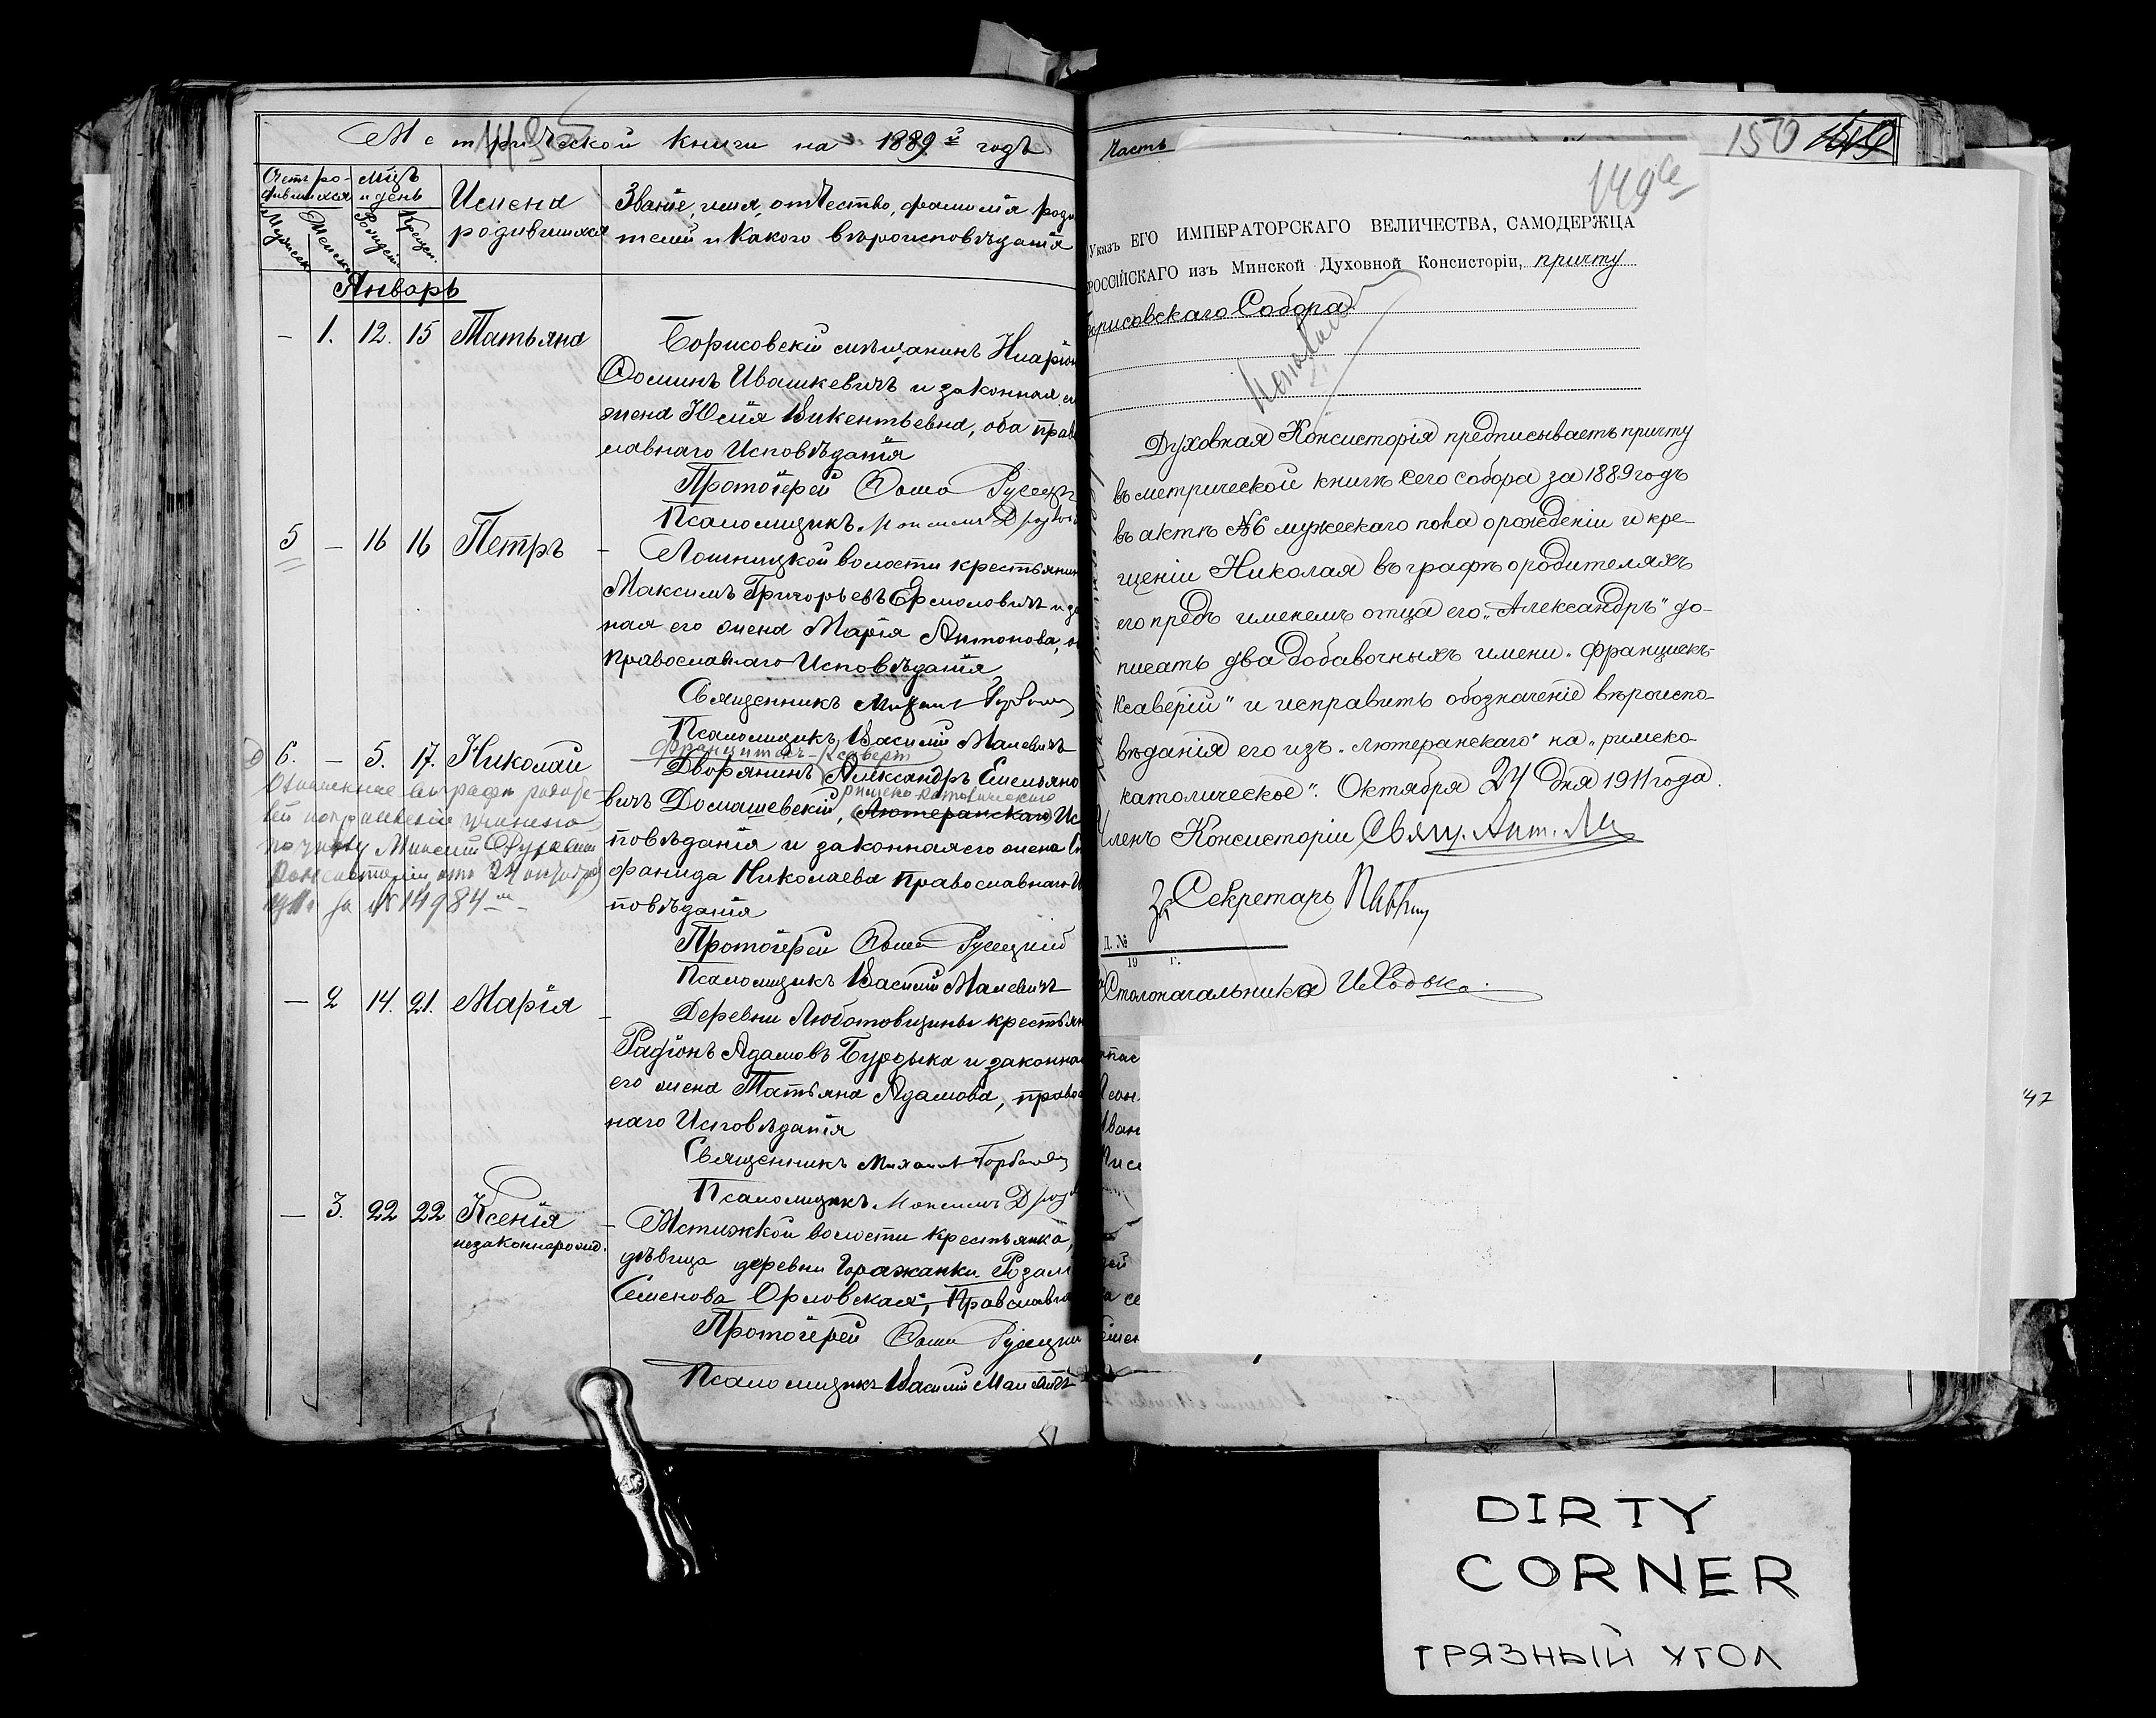 Метрической книги на 1889й годъ
Счетъ ро-
дившихся
Мужеск.
Женск.
Мѣц.
и день
Рожден.
Крещен.
Имена
родившихся
Званіе, имя, отчество, фамилія роди
телей и какого вѣроисповѣданія
Январь
– 1. 12. 15 Татьяна
Борисовскій мѣщанинъ Иларіон
Ѳоминъ Ивашкевичъ и законная е
жена Юлія Викентьевна, оба право
славнаго Исповѣданія
Протоіерей Ѳома Русецкі
Псаломщикъ Максим
5 – 16 16 Петръ
Лошницкой волости крестьянин
Максимъ Григорьевъ Ермоловичъ и за
ная его жена Марія Антонова, о
Православнаго Исповѣданія
Священникъ Михаил
Псаломщикъ Василій Малевичъ
6. – 5. 17. Николай
Францишекъ-Ксаверій
Дворянинъ Александръ Емельяно
римско-католическаго
вичъ Домашевскій, Лютеранскаго Ис
повѣданія и законная его жена Сте
фанида Николаева Православнаго И
повѣданія
Протоіерей Ѳома Русецкій
Псаломщикъ Василій Малевичъ
въ графѣ родите-
лей
по указу Минской Духовной
Консисторіи отъ 24 октября
1911 за № 14984
– 2 14. 21. Марія
Деревни Любатовщины крестьян
Радіонъ Адамовъ Бурдыка и законна
его жена Татьяна Адамова, правос
наго Исповѣданія
Священникъ Михаил Горбацевич
Псаломщикъ Максим
– 3. 22 22 Ксенія
незаконнорожд.
Мстижской волости крестьянка,
дѣвица деревни Горажанки Розалі
Семенова Орловская, Православна
Протоіерей Ѳома Русецкій
Псаломщикъ Василій Малевичъ
Часть
150
149
Указъ ЕГО ИМПЕРАТОРСКАГО ВЕЛИЧЕСТВА, САМОДЕРЖЦА
РОССІЙСКАГО изъ Минской Духовной Консисторіи, причту
Борисовскаго Собора
Духовная Консисторія предписываетъ причту
въ метрической книгѣ сего собора за 1889 годъ
въ актѣ №6 мужескаго пола о рожденіи и кре-
щеніи Николая въ графѣ о родителяхъ
его предъ именемъ отца его „Александръ" до-
писать два добавочныхъ имени „Францискъ-
Ксаверій" и исправить обозначеніе вѣроиспо-
вѣданія его изъ „лютеранскаго" на „римско-
католическое". Октября 24 дня 1911 года.
Членъ Консисторіи Свящ. Ант.
За Секретарь
Д. №
19 г.
Столоначальника
47
DIRTY
CORNER
ГРЯЗНЫЙ УГОЛ